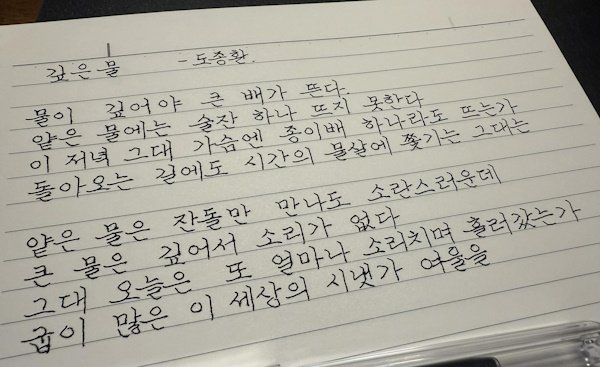 깊은물 - 도종환.
물이 깊어야 큰 배가 뜬다.
얕은 물에는 술잔 하나 뜨지 못한다
이 저녁 그대 가슴엔 종이배 하나라도 뜨는가
돌아오는 길에도 시간의 물살에 쫓기는 그대는
얕은 물은 잔돌만 만나도 소란스러운데
큰 물은 깊어서 소리가 없다
그대 오늘은 또 얼마나 소리치며 흘러갔는가
굽이 많은 이 세상의 시냇가 여울을